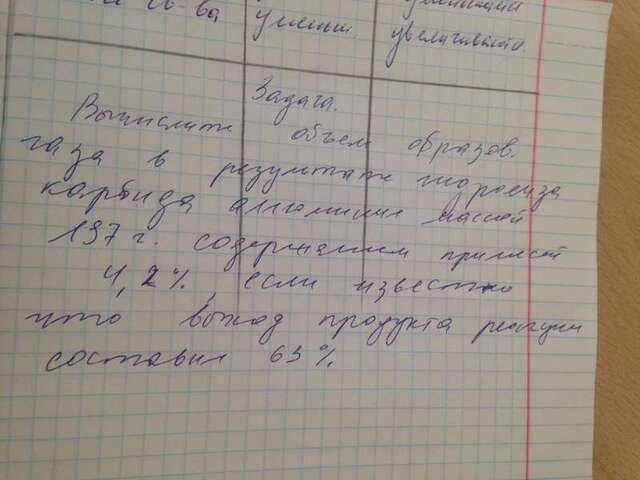 св-ва
увеличивает.
Задача.
Вычислите объем образов.
газа в результате гидролиза
карбида алюминия массой
197 г. содержанием примесей
4,2%, если известно
что выход продукта реакции
составил 63%.